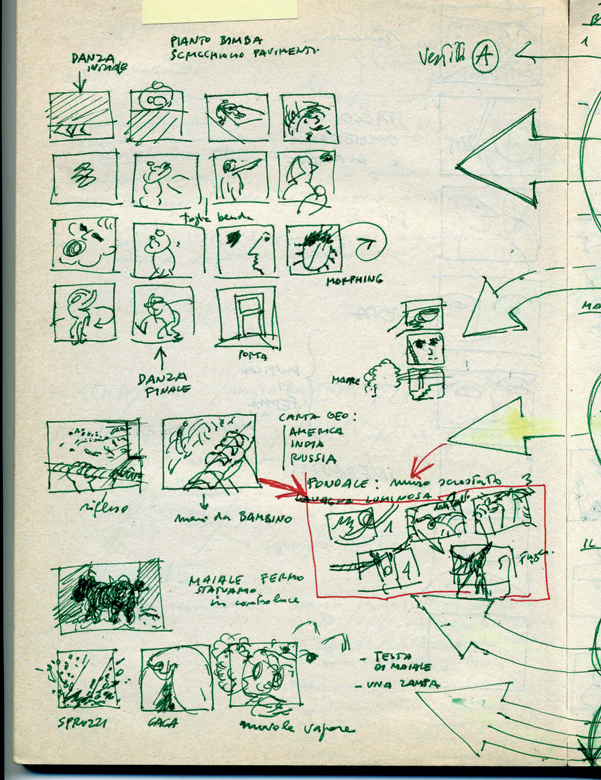 PIANTO BIMBA
SCRICCHIOLIO PAVIMENTI.
DANZA
INIZIALE
Vestito A
toglie benda
MORPHING
PORTA
MADRE
DANZA
FINALE
CARTA GEO:
AMERICA
INDIA
RUSSIA
FONDALE: muro scrostato
LAVAGNA LUMINOSA
riflesso
mani da BAMBINO
1
2
3
4
5
MAIALE FERMO
STATUARIO
in controluce
- TESTA
DI MAIALE
- UNA ZAMPA
SPRUZZI
CACCA
nuvole vapore
1
IL